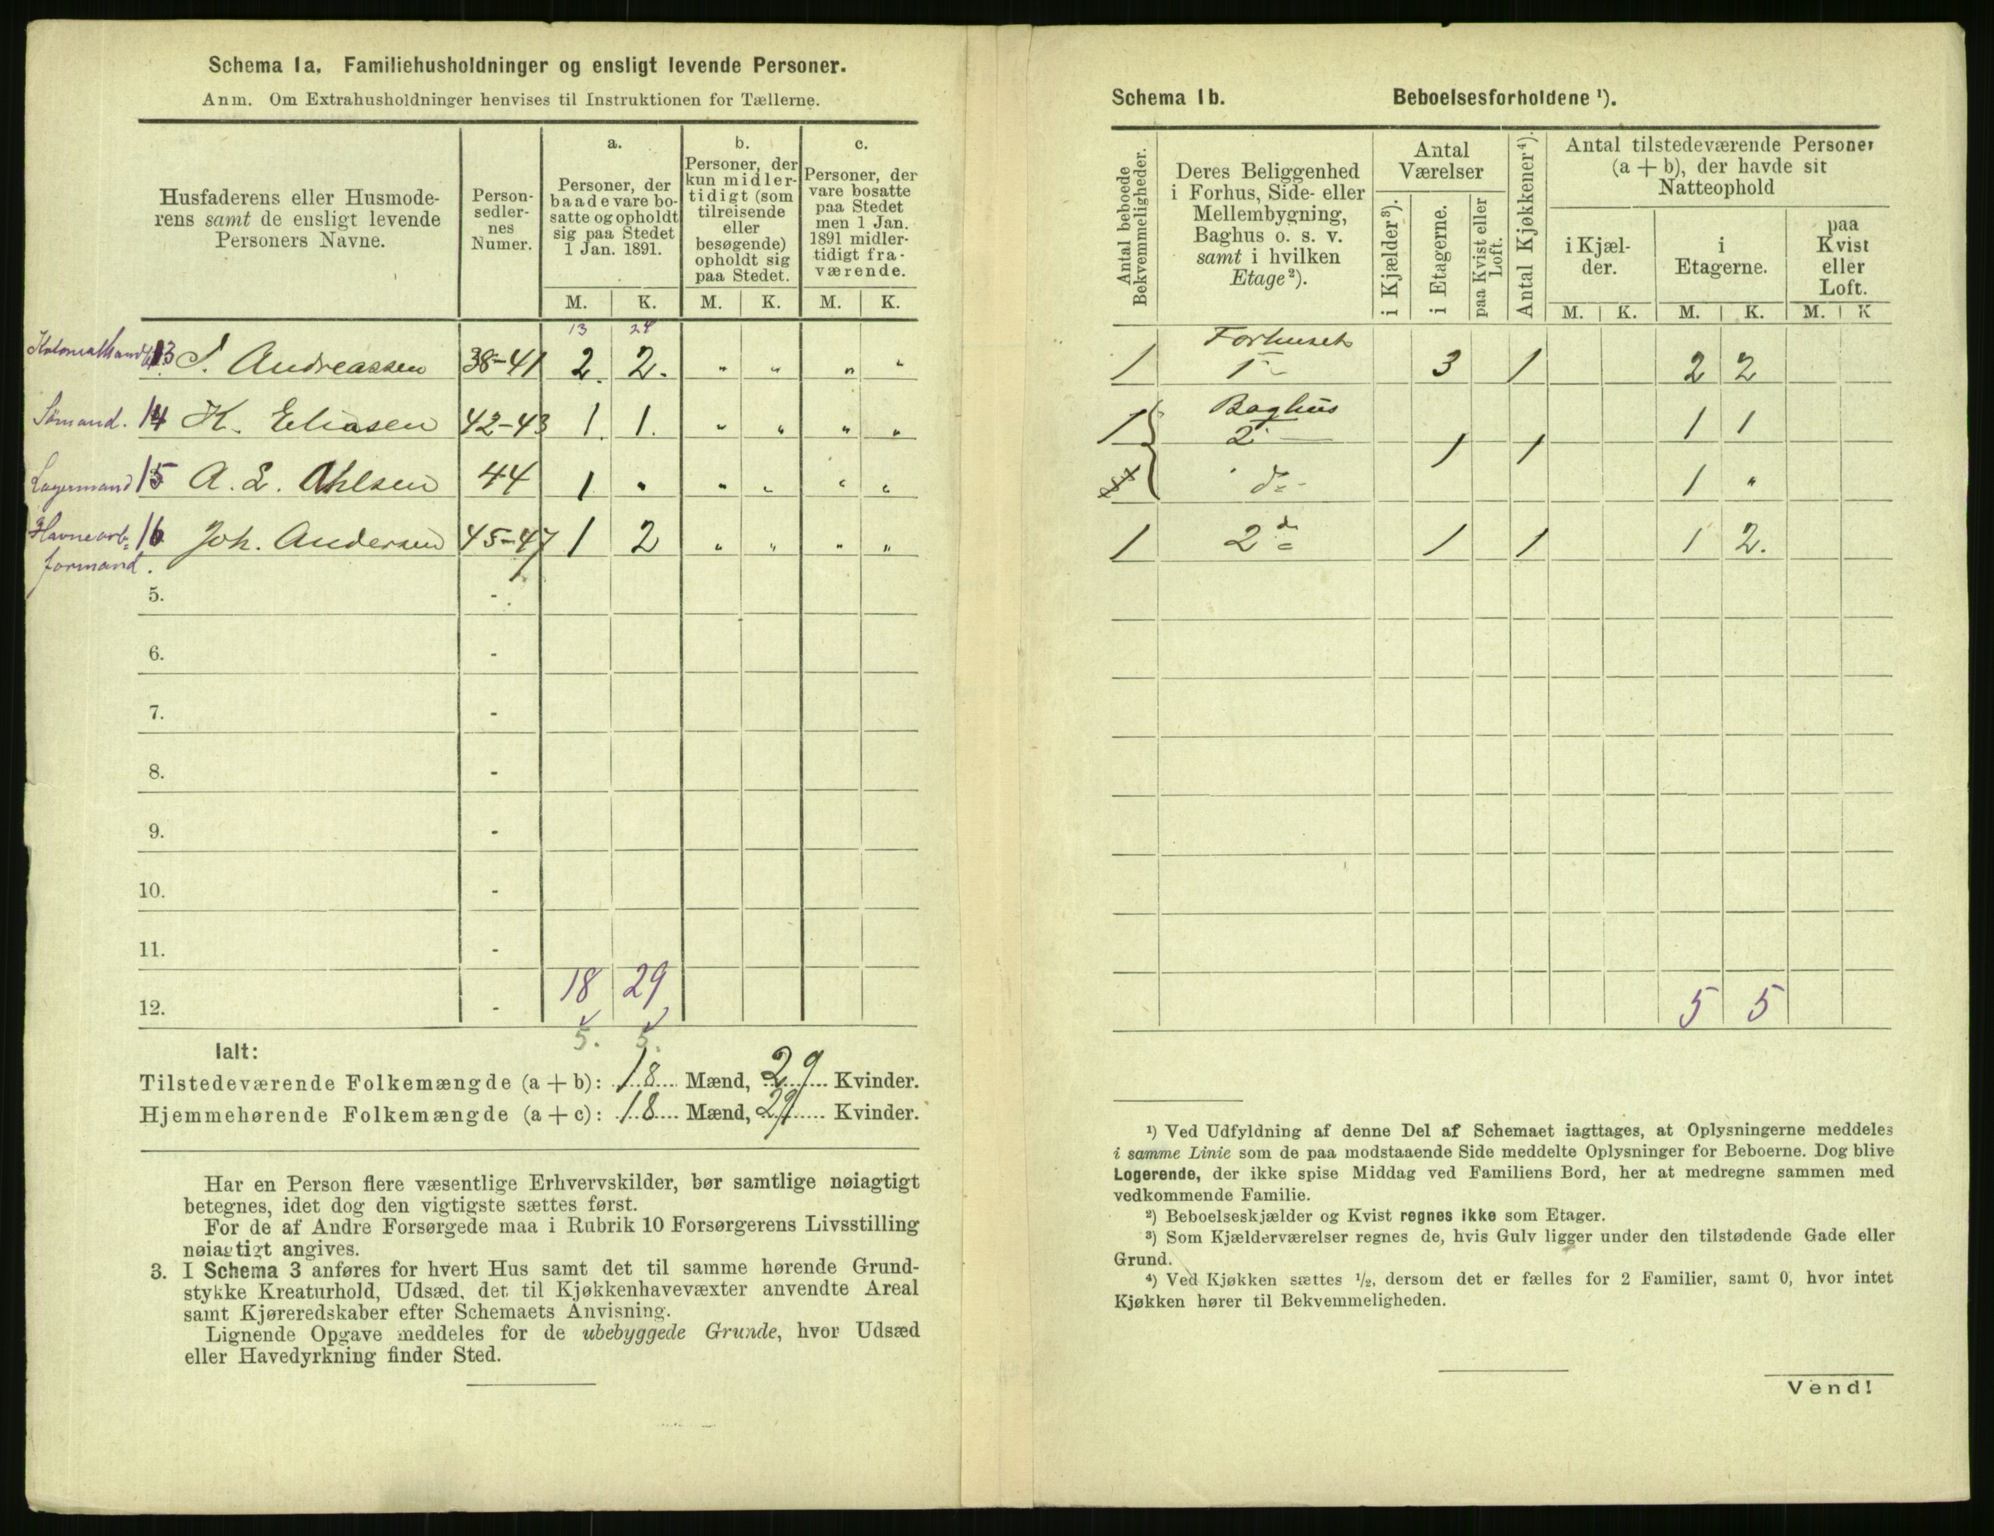 Schema 1a. Familiehusholdninger og ensligt levende Personer.
Anm. Om Extrahusholdninger henvises til Instruktionen for Tællerne.
Husfaderens eller Husmode-
rens samt de ensligt levende
Personers Navne.
Person-
sedler-
nes
Numer.
a.
Personer, der
baade vare bo-
satte og opholdt
sig paa Stedet
1 Jan. 1891.
b.
Personer, der
kun midler-
tidigt (som
tilreisende
eller
besøgende)
opholdt sig
paa Stedet.
c.
Personer, der
vare bosatte
paa Stedet
men 1 Jan.
1891 midler-
tidigt fra-
værende.
M. K. M. K. M. K.
13 28
13 J. Andreassen 38-41 2. 2. " " " "
Sömand. 14 K. Eliasen 42-43 1. 1. " " " "
Lagermand 15 A. L. Ohlsen 44 1 " " " " "
Havnearb= 16 Joh. Andersen 45-47 1 2 " " " "
formand.
5. -
6. -
7. -
8. -
9. -
10. -
11. -
18 29
12. -
5. 5.
Ialt:
Tilstedeværende Folkemængde (a + b): 18 Mænd, 29 Kvinder.
Hjemmehørende Folkemængde (a + c): 18 Mænd, 29 Kvinder.
Har en Person flere væsentlige Erhvervskilder, bør samtlige nøiagtigt
betegnes, idet dog den vigtigste sættes først.
For de af Andre Forsørgede maa i Rubrik 10 Forsørgerens Livsstilling
nøiagtigt angives.
3. I Schema 3 anføres for hvert Hus samt det til samme hørende Grund-
stykke Kreaturhold, Udsæd, det til Kjøkkenhavevæxter anvendte Areal
samt Kjøreredskaber efter Schemaets Anvisning.
Lignende Opgave meddeles for de ubebyggede Grunde, hvor Udsæd
eller Havedyrkning finder Sted.
Schema 1b. Beboelsesforholdene ¹).
Antal beboede
Bekvemmeligheder.
Deres Beliggenhed
i Forhus, Side- eller
Mellembygning,
Baghus o. s. v.
samt i hvilken
Etage²).
Antal
Værelser
i Kjælder³).
i Etagerne.
paa Kvist eller
Loft.
Antal Kjøkkener⁴).
Antal tilstedeværende Personer
(a + b), der havde sit
Natteophold
i Kjæl-
der.
i
Etagerne.
paa
Kvist
eller
Loft.
M. K. M. K. M. K
Forhuset
1 1- 3 1 2 2
Baghus
1 2- 1 1 1 1
do 1 "
1 2 do 1 1 1 2.
5 5
¹) Ved Udfyldning af denne Del af Schemaet iagttages, at Oplysningerne meddeles
i samme Linie som de paa modstaaende Side meddelte Oplysninger for Beboerne. Dog blive
Logerende, der ikke spise Middag ved Familiens Bord, her at medregne sammen med
vedkommende Familie.
²) Beboelseskjælder og Kvist regnes ikke som Etager.
³) Som Kjælderværelser regnes de, hvis Gulv ligger under den tilstødende Gade eller
Grund.
⁴) Ved Kjøkken sættes ½, dersom det er fælles for 2 Familier, samt 0, hvor intet
Kjøkken hører til Bekvemmeligheden.
Vend!